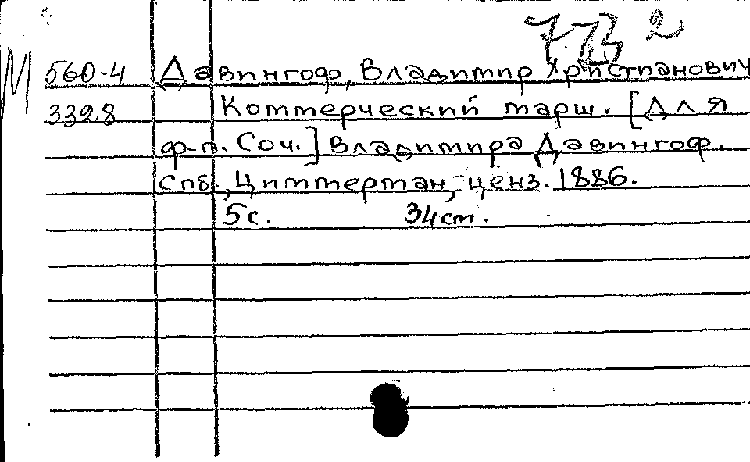 773 2
М 560-4 Давингоф, Владимир Христианович
3398 Коммерческий марш. [Для
ф-п. Соч.] Владимира Давингоф.
Спб., Циммерман, ценз. 1886.
5с. 34см.